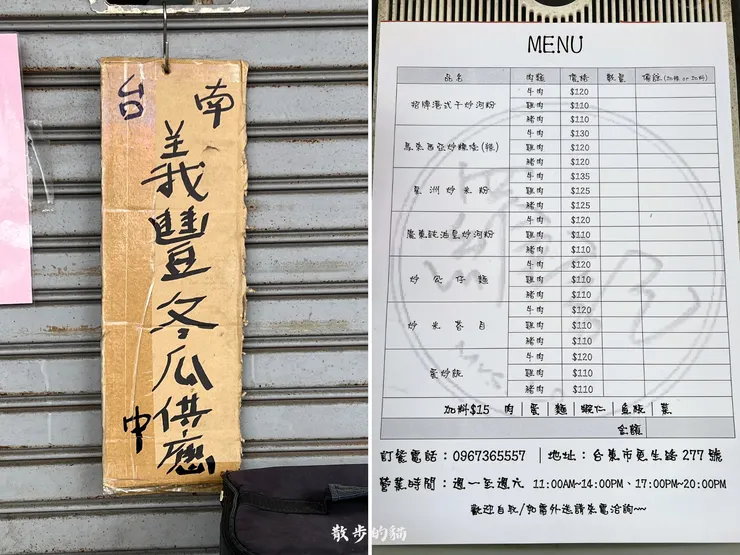 台南
義豐冬瓜供應中
MENU
品名 肉類 價格 數量 備註(加辣 or 加料)
招牌港式干炒河粉 牛肉 $120
雞肉 $110
豬肉 $110
馬來西亞炒粿條(辣) 牛肉 $130
雞肉 $120
豬肉 $120
星洲炒米粉 牛肉 $135
雞肉 $125
豬肉 $125
廣東豉油皇炒河粉 牛肉 $120
雞肉 $110
豬肉 $110
炒公仔麵 牛肉 $120
雞肉 $110
豬肉 $110
炒米苔目 牛肉 $120
雞肉 $110
豬肉 $110
蛋炒飯 牛肉 $120
雞肉 $110
豬肉 $110
加料$15 肉 | 蛋 | 麵 | 蝦仁 | 魚板 | 菜
金額
訂餐電話：0967365557 | 地址：台東市更生路277號
營業時間：週一至週六 11:00AM~14:00PM、17:00PM~20:00PM
歡迎自取/如需外送請來電洽詢~~
散步的貓